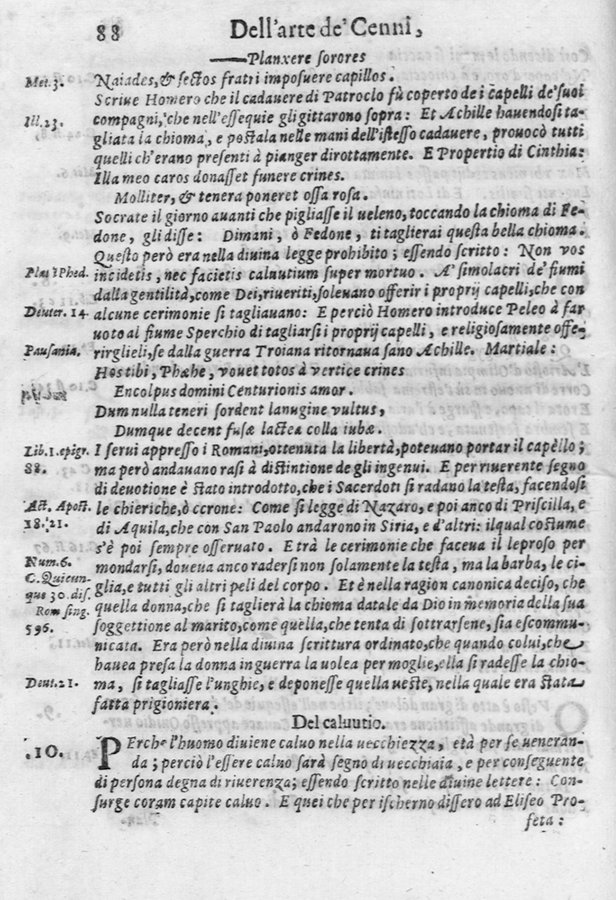 88 Dell'arte de' Cenni,
Planxere sorores
Met. 3. Naiades, & sectos fratri imposuere capillos.
Scriue Homero che il cadauere di Patroclo fù coperto de i capelli de' suoi
Ill. 23. compagni, che nell'essequie gli gittarono sopra: Et Achille hauendosi ta-
gliata la chioma, e postala nelle mani dell'istesso cadauere, prouocò tutti
quelli ch'erano presenti à pianger dirottamente. E Propertio di Cinthia:
Illa meo caros donasset funere crines.
Molliter, & tenera poneret ossa rosa.
Socrate il giorno auanti che pigliasse il ueleno, toccando la chioma di Fe-
done, gli disse: Dimani, ò Fedone, ti taglierai questa bella chioma.
Questo però era nella diuina legge prohibito; essendo scritto: Non vos
Plau i Phed. incidetis, nec facietis caluutium super mortuo. A' simolacri de' fiumi
dalla gentilità, come Dei, riueriti, soleuano offerir i proprij capelli, che con
Deuter. 14. alcune cerimonie si tagliauano: E perciò Homero introduce Peleo à far
uoto al fiume Sperchio di tagliarsi i proprij capelli, e religiosamente offe-
Pausania. rirglieli, se dalla guerra Troiana ritornaua sano Achille. Martiale:
Hostibi, Phæbe, vouet totos à vertice crines
Encolpus domini Centurionis amor.
Dum nulla teneri sordent lanugine vultus,
Dumque decent fusæ lactea colla iubæ.
Lib. 1. epigr. I serui appresso i Romani, ottenuta la libertà, poteuano portar il capèllo;
88. ma però andauano rasi à distintione de gli ingenui. E per riuerente segno
di deuotione è stato introdotto, che i Sacerdoti si radano la testa, facendosi
Act. Apost. le chieriche, ò ccrone: Come si legge di Nazaro, e poi anco di Priscilla, e
18. 21. di Aquila, che con San Paolo andarono in Siria, e d'altri: il qual costume
s'è poi sempre osseruato. E trà le cerimonie che faceua il leproso per
Num. 6. mondarsi, doueua anco radersi non solamente la testa, ma la barba, le ci-
C. Quicun- glia, e tutti gli altri peli del corpo. Et è nella ragion canonica deciso, che
que 30. dis. quella donna, che si taglierà la chioma datale da Dio in memoria della sua
Rom sing. soggettione al marito, come quella, che tenta di sottrarsene, sia escommu-
596. nicata. Era però nella diuina scrittura ordinato, che quando colui, che
hauea presa la donna in guerra la uolea per moglie, ella si radesse la chio-
Deut. 21. ma, si tagliasse l'unghie, e deponesse quella ueste, nella quale era stata
fatta prigioniera.
Del caluutio.
10. PErche l'huomo diuiene caluo nella uecchiezza, età per se ueneran-
da; perciò l'essere caluo sarà segno di uecchiaia, e per conseguente
di persona degna di riuerenza; essendo scritto nelle diuine lettere: Con-
surge coram capite caluo. E quei che per ischerno dissero ad Eliseo Pro-
feta: